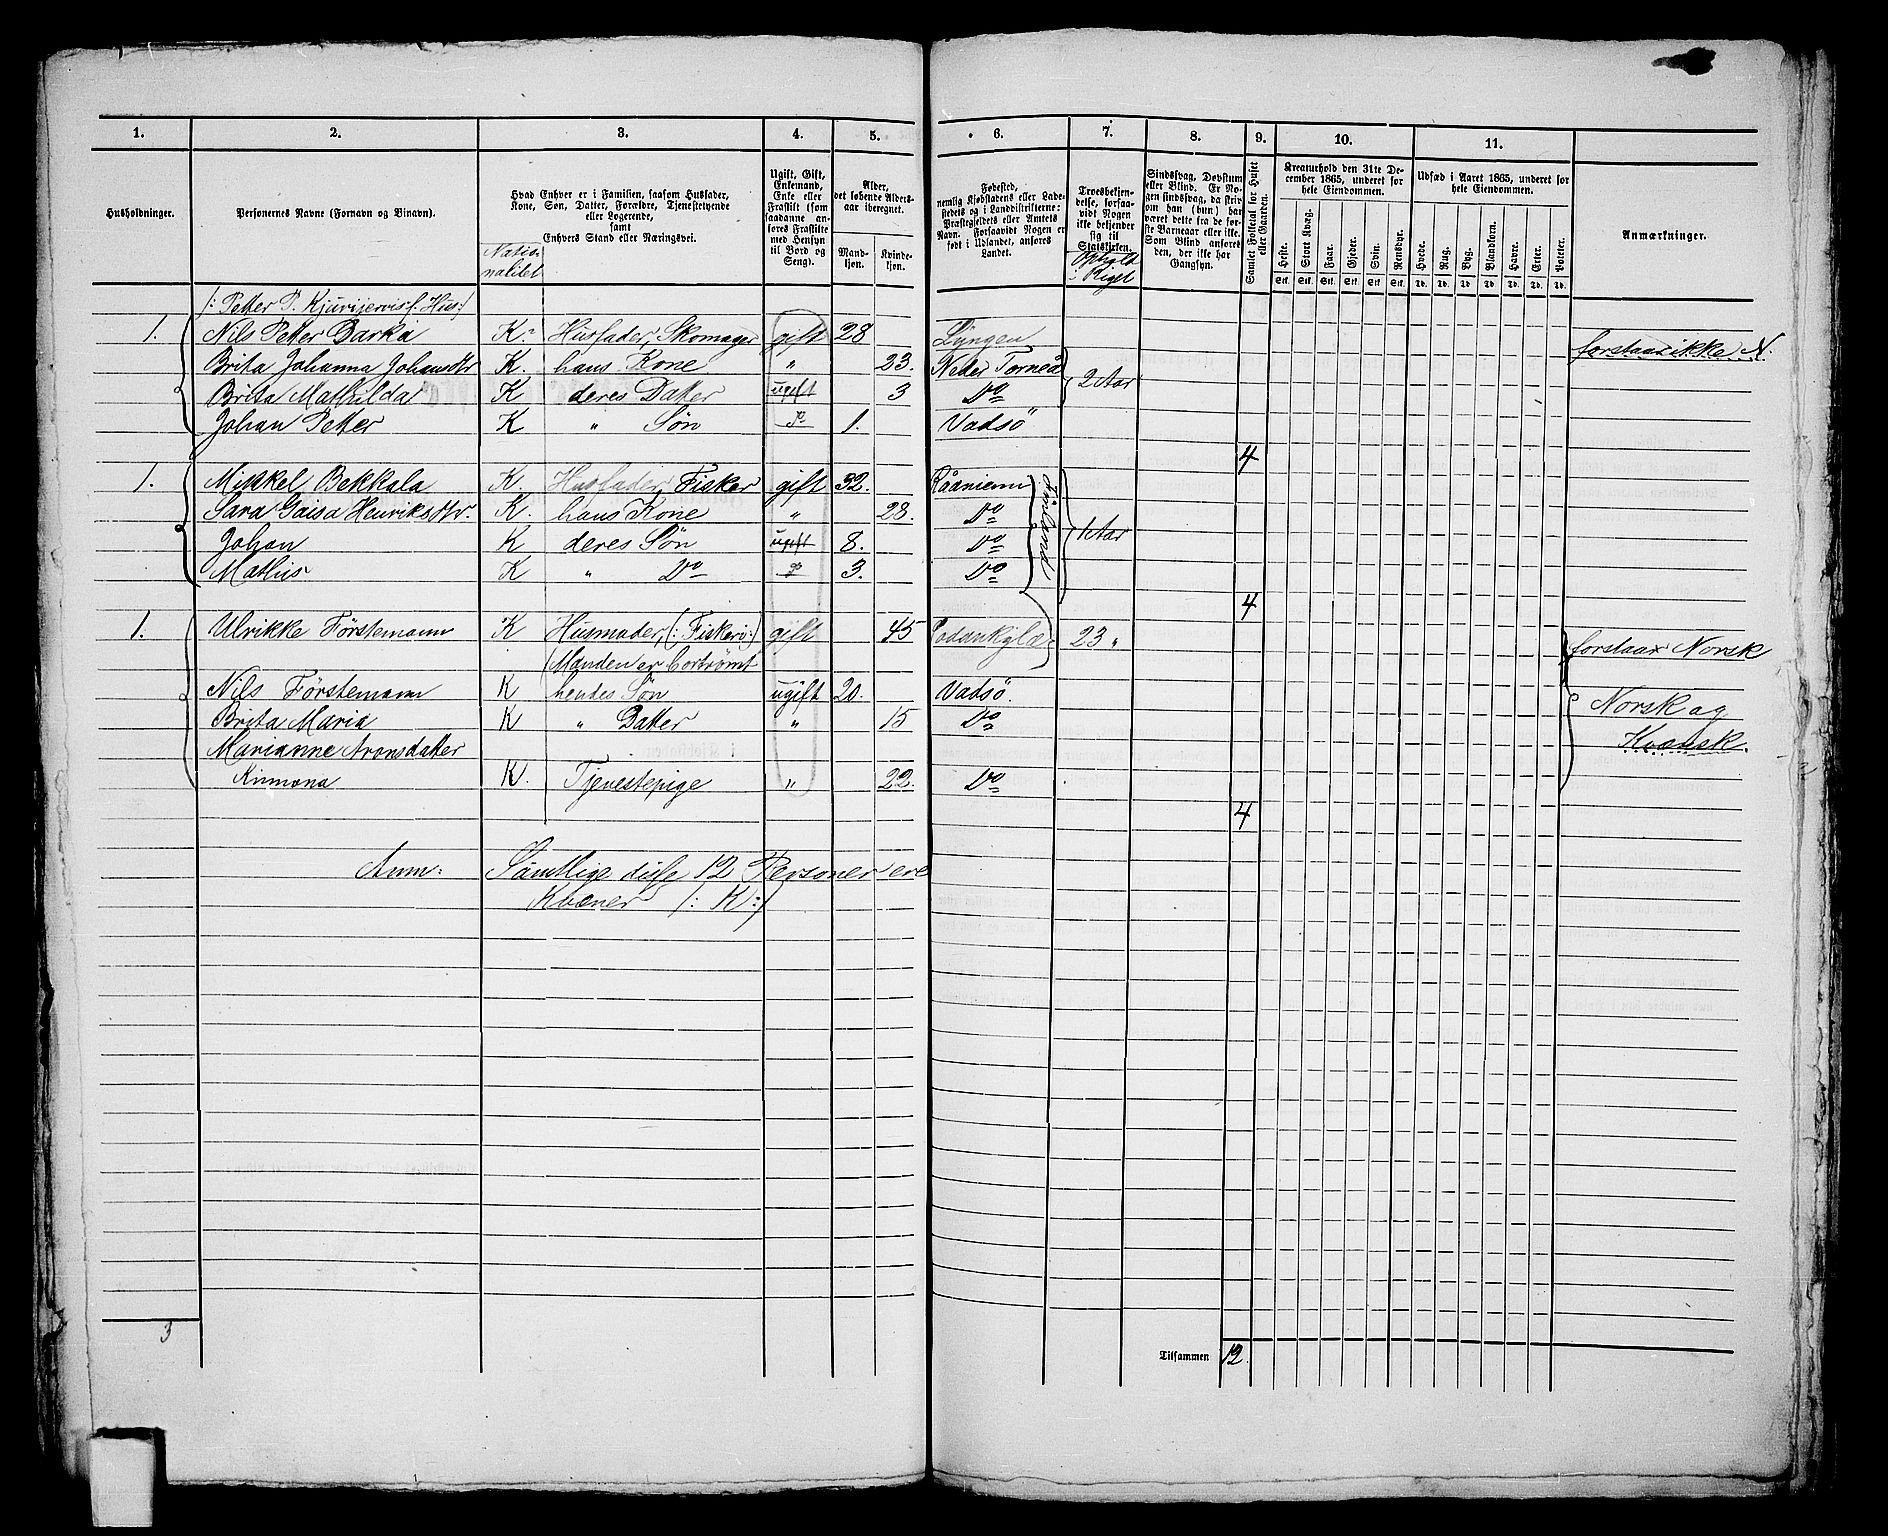 1. 2. 3. 4. 5. 6. 7. 8. 9. 10. 11.
Husholdninger.
Personernes Navne (Fornavn og Binavn).
Hvad Enhver er i Familien, saasom Husfader,
Kone, Søn, Datter, Forældre, Tjenestetyende
eller Logerende,
samt
Enhvers Stand eller Næringsvei.
Natio-
nalitet
Ugift, Gift,
Enkemand,
Enke eller
Fraskilt (som
saadanne an-
føres Fraskilte
med Hensyn
til Bord og
Seng).
Alder,
det løbende Alders-
aar iberegnet.
Mand-
kjøn.
Kvinde-
kjøn.
Fødested,
nemlig Kjøbstadens eller Lade-
stedets og i Landdistrikterne:
Præstegjeldets eller Amtets
Navn. Forsaavidt Nogen er
født i Udlandet, anføres
Landet.
Troesbekjen-
delse, forsaa-
vidt Nogen
ikke bekjender
sig til
Statskirken.
Ophold
i Riget
Sindssvag, Døvstum
eller Blind. Er No-
gen sindssvag, da skriv
om han (hun) har
været dette fra de før-
ste Barneaar eller ikke.
Som Blind anføres
den, der ikke har
Gangsyn.
Samlet Folketal for Huset
eller Gaarden.
Kreaturhold den 31te De-
cember 1865, underet for
hele Eiendommen.
Heste. Stort Kvæg. Faar. Gjeder. Svin. Rensdyr.
Stk. Stk. Stk. Stk. Stk. Stk.
Udsæd i Aaret 1865, underet for
hele Eiendommen.
Hvede. Rug. Byg. Blandkorn. Havre. Erter. Poteter.
Td. Td. Td. Td. Td. Td. Td.
Anmærkninger.
(: Petter P. Kjuvijervis f. Hus:)
1. Nils Petter Barka K. Husfader, Skomager gift 28 Lyngen forstaar ikke N.
Brita Johanna Johansdtr K. hans Kone " 23. Neder Torneå
Brita Mathilda K deres Datter ugift 3 Do 2 Aar
Johan Petter K " Søn 1. Vadsö
4
1. Mikkel Bekkala K. Husfader Fisker gift 32.
Sara Gaisa Henriksdtr. K. hans Kone " 28. Do
Johan K deres Søn ugift 8. Do 1 Aar
Mathis K " Do 3. Do
Finland
4
1. Ulrikke Förstemann K Husmoder, (: Fiskeri:) gift 45 23 " forstaar Norsk
(Manden er bortrømt
Nils Förstemann K hendes Søn ugift 20. Vadsö
Brita Maria K " Datter " 15 Do Norsk og
Marianne Aronsdatter Kvænsk.
K. Tjenestepige " 22. Do
4
Anm: Samtlige disse 12 Personer ere
Kvæner (: K:)
3
Tilsammen 12.